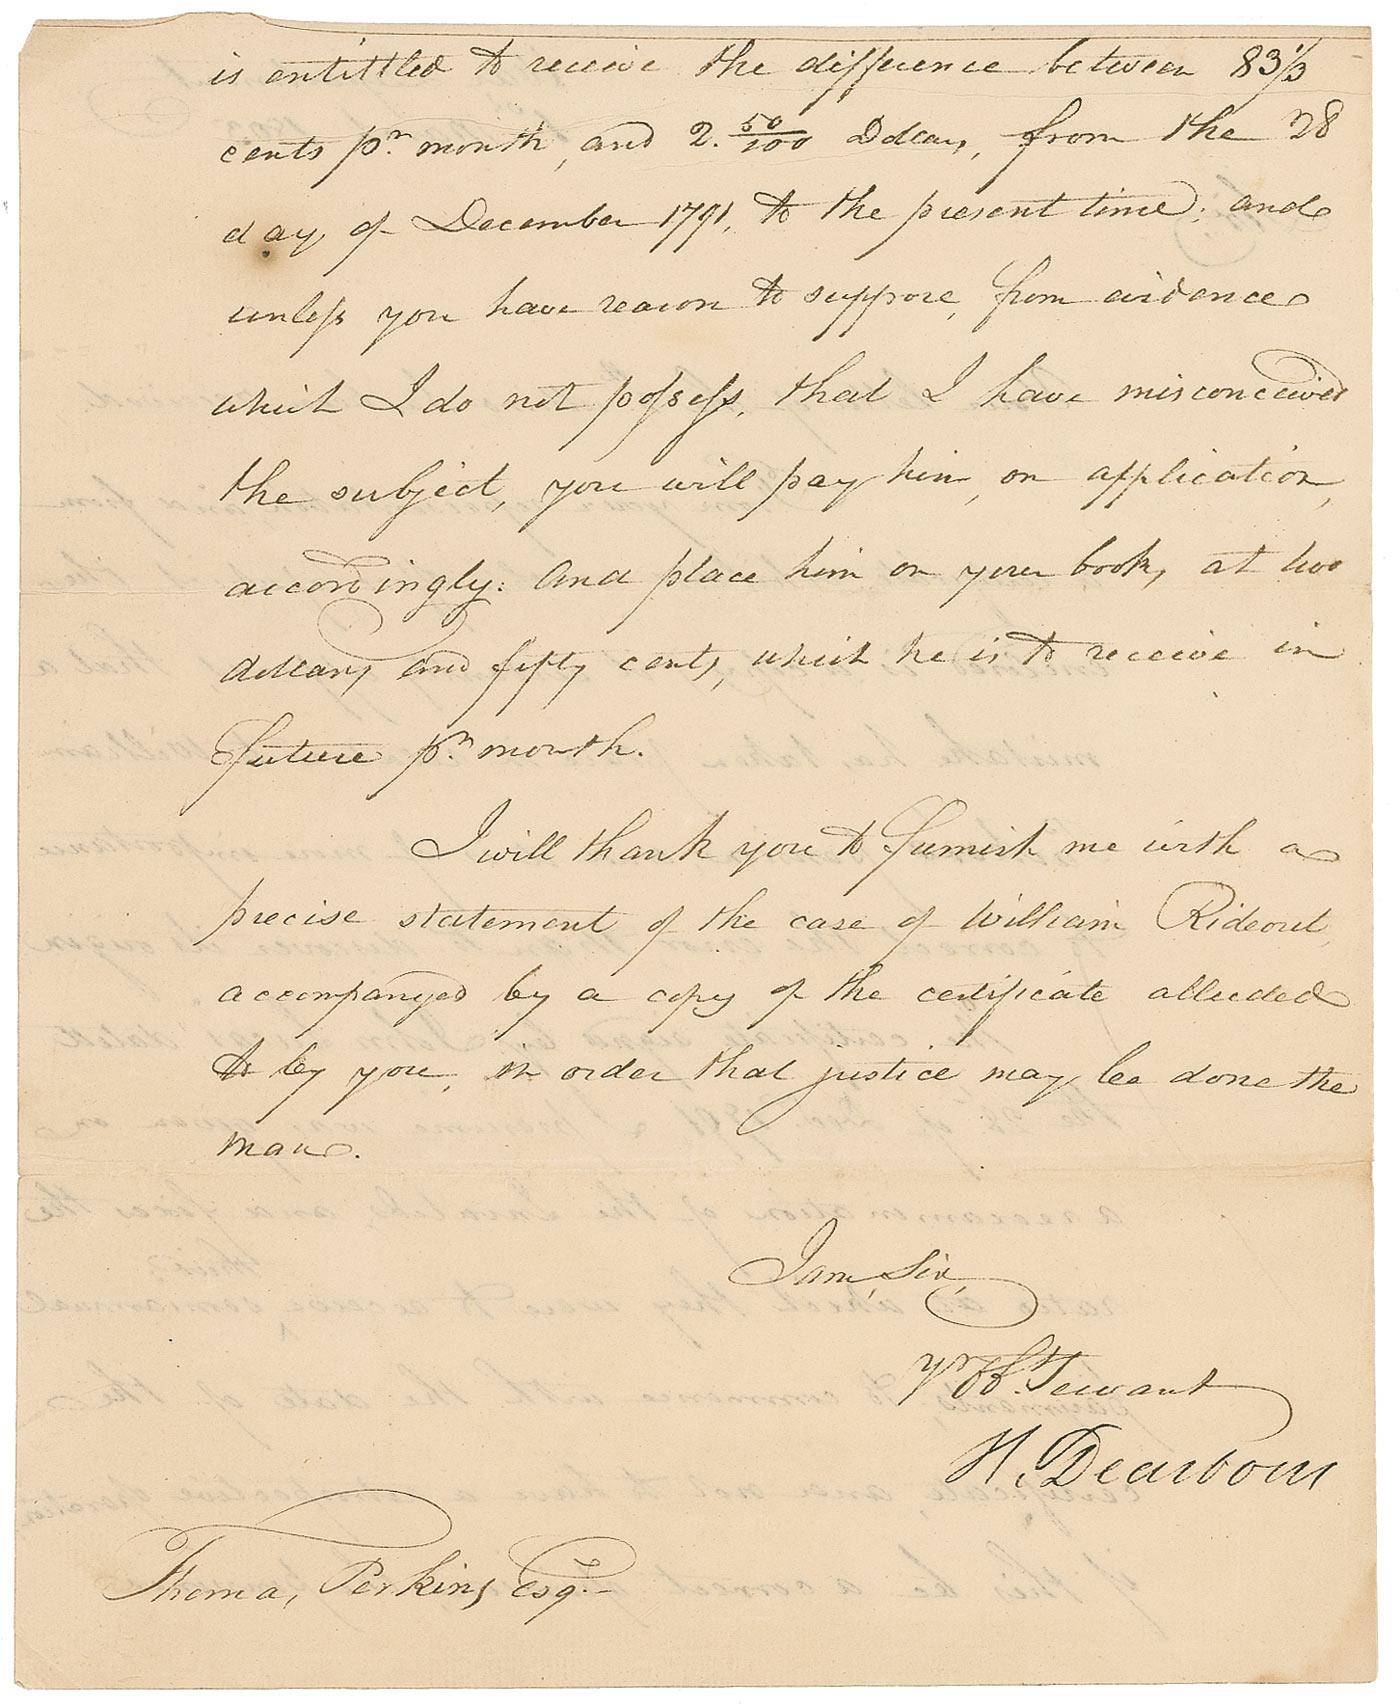 is entittled to receive the difference between 83 1/3
cents pr. month, and 2. 50/100 Dollars, from the 28
day of December 1791, to the present time; and
unless you have reason to suppose, from evidence
which I do not possess, that I have misconceived
the subject, you will pay him, on application,
accordingly: And place him on your books, at two
dollars and fifty cents, which he is to receive in
future pr. month.
I will thank you to furnish me with a
precise statement of the case of William Rideout,
accompanyed by a copy of the certificate alluded
to by you, in order that justice may be done the
man.
I am, Sir,
yr. Ob. Servant
H. Dearborn
Thomas Perkins Esqr.